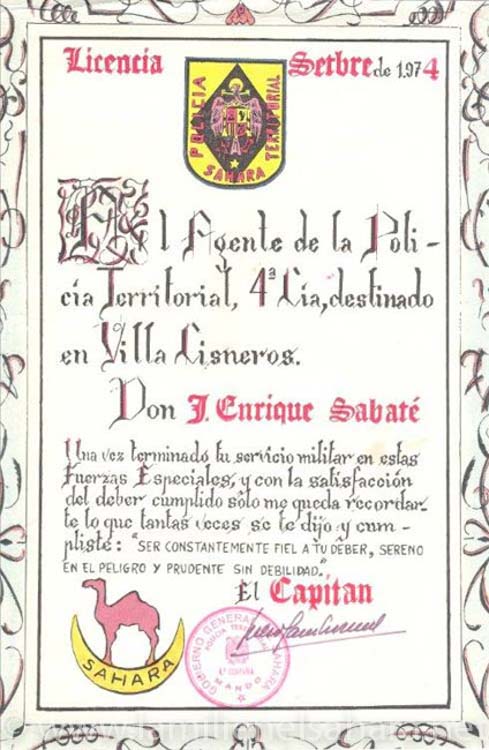 Licencia Setbre de 1.974
POLICIA TERRITORIAL
SAHARA
Al Agente de la Poli-
cía Territorial, 4ª Cia, destinado
en Villa Cisneros.
Don J. Enrique Sabaté
Una vez terminado tu servicio militar en estas
Fuerzas Especiales, y con la satisfacción
del deber cumplido sólo me queda recordar-
te lo que tantas veces se te dijo y cum-
pliste: "SER CONSTANTEMENTE FIEL A TU DEBER, SERENO
EN EL PELIGRO Y PRUDENTE SIN DEBILIDAD."
El Capitan
SAHARA
GOBIERNO GENERAL SAHARA
POLICIA TERRITORIAL
4ª COMPAÑIA
MANDO